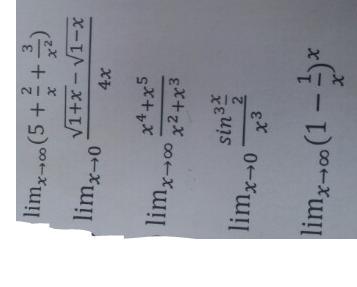 lim x→∞ (5 + 2/x + 3/x²)
lim x→0 (√1+x − √1−x)/4x
lim x→∞ (x⁴+x⁵)/(x²+x³)
lim x→0 (sin³ x/2)/x³
lim x→∞ (1 − 1/x)ˣ